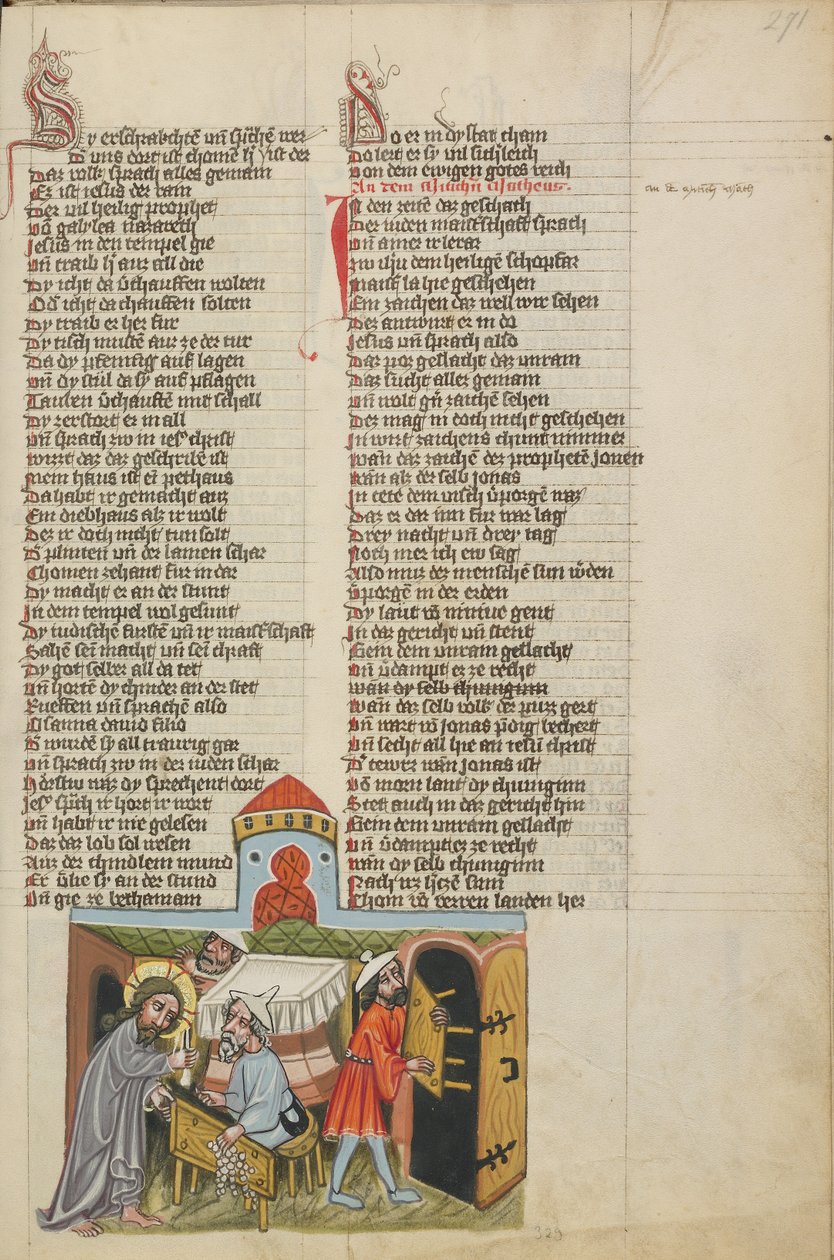 271
Sy erschrakchtē vn̄ sp̄chē wer
D uns dort ist chomē h̄ ist der
Daz volk sprach alles gemain
Ez ist iesus der rain
Der vil heilig prophet
Vō galylea nazareth
Jesus in den tempel gie
Vn̄ traib h̄ auz all die
Dy icht da v̄chauffen wolten
Od̄ icht da chauffen solten
Dy traib er her fur
Dy tisch mustē auz ze der tur
Da dy pfennig auf lagen
Vn̄ dy stül da sy auf pflagen
Tauben v̄chauftē mit schall
Dy zerstort er in all
Vn̄ sprach zw in ies⁹ christ
Wizzt daz daz geschribē ist
Mein haus ist ei pethaus
Da habt ir gemacht auz
Ein diebhaus alz ir wolt
Dez ir doch nicht tun solt
D̄ plinten vn̄ der lamen schar
Chomen zehant fur in dar
Dy macht er an der stunt
In dem tempel wol gesunt
Dy iudischē fursten vn̄ ir maist̄schaft
Sahē sei macht vn̄ sei chraft
Dy got selber all da tet
Vn̄ hortē dy chinder an der stet
Rueffen vn̄ sprachē also
Osanna dauid filio
D̄ wurdē sy all traurig gar
Vn̄ sprach zw in der iuden schar
Hörstw waz dy sprechent dort
Jes⁹ sp̄ch ir hort ir wort
Vn̄ habt ir nie gelesen
Daz daz lob sol wesen
Auz der chindlein mund
Er v̄lie sy an der stund
Vn̄ gie ze bethaniam
Do er in dy stat cham
Do lert er sy vil sich̄leich
Von dem ewigen gotes reich
An dem Matheus.
In den zeitē daz geschach
Der iuden maist̄schaft sprach
Vn̄ ainer ir lerar
Zw ihū dem heiligē schopfar
Maist̄ la hie geschehen
Ein zaichen daz well wir sehen
Dez antwurt er in do
Jesus vn̄ sprach also
Daz poz geslacht daz unrain
Daz sucht allez gemain
Vn̄ wolt gn̄ zaichē sehen
Dez mag in doch nicht geschehen
In wirt zaichens chunt nimmer
Wān daz zaichē dez prophetē Jonen
Wān alz der selb jonas
In cete dem visch v̄porgē waz
Daz er dar inn fur war lag
Drey nacht vn̄ drey tag
Noch mer ich ew sag
Also muz dez menschē sun w̄den
V̄porgē in der erden
Dy läut vō niniue gent
In daz gericht vn̄ stent
Gein dem unrain geslacht
Vn̄ v̄dampt ez ze recht
Wān dy selb chunginn
Wan daz selb volk der puzz gert
Vn̄ wart vō Jonas p̄dig bechert
Vn̄ secht all hie an iesū christ
D̄ tewrr wān Jonas ist
Vō morn laut dy chuniginn
Stet auch in daz gericht hin
Gein dem unrain geslacht
Vn̄ v̄dampt ez ze recht
Wān dy selb chuniginn
Nach irz h̄czē sinn
Chom vō verren landen her
329